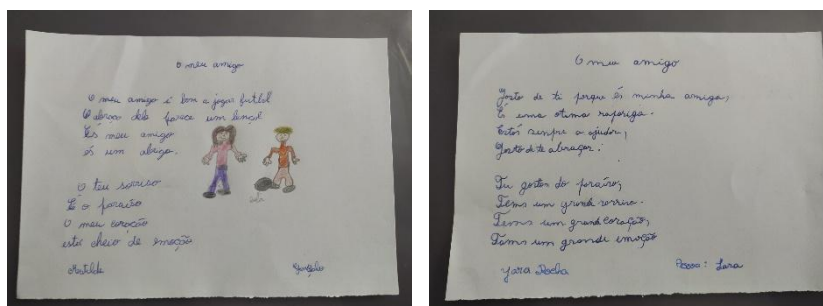 O meu amigo
O meu amigo é bom a jogar futebol
O abraço dele parece um lençol
És meu amigo
és um abrigo.
O teu sorriso
É o paraíso
O meu coração
está cheio de emoção
Matilde
O meu amigo
Gosto de ti porque és minha amiga,
É uma otima rapariga.
Estás sempre a ajudar,
Gosto de te abraçar.
Tu gostas do paraíso,
Tems um grande sorriso.
Tems um grande coração,
Tems um grande emoção
Yara Rocha
Pessoa: Lara